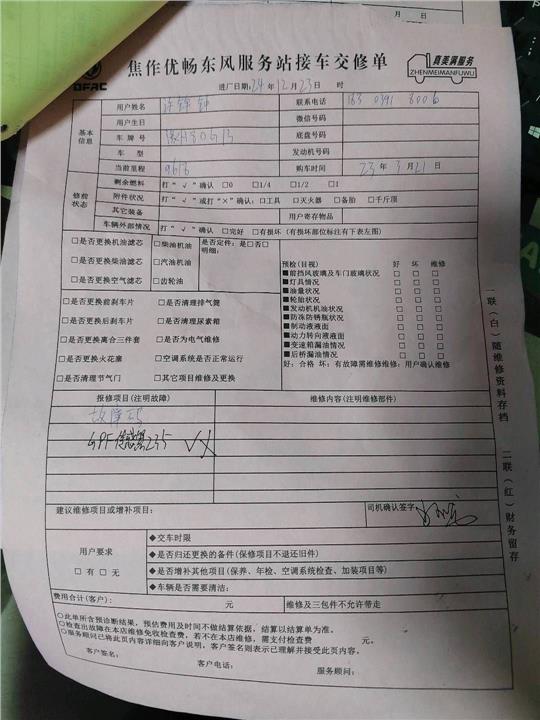 月 日
DFAC
焦作优畅东风服务站接车交修单
真美满服务
ZHENMEIMANFUWU
进厂日期:24年12月23日 时
基本信息
用户姓名 联系电话
用户生日 微信号码
车牌号 底盘号码
车型 发动机号码
当前里程 9613 购车时间 23年3月21日
修前状态
剩余燃料 打“√”确认 □0 □1/4 □1/2 □1
附件状况 打“√”或打“×”确认:□工具 □灭火器 □备胎 □千斤顶
其它装备 用户寄存物品
车辆外部情况 打“√”确认 □完好 □有损坏(有损坏部位标注有下表左图)
□是否更换机油滤芯 □柴油机油 是否定件:是□否□
明细:
□是否更换柴油滤芯 □汽油机油
□是否更换空气滤芯 □齿轮油
□是否更换前刹车片 □是否清理排气筒
□是否更换后刹车片 □是否清理尿素箱
□是否更换离合三件套 □是否为电气维修
□是否更换火花塞 □空调系统是否正常运行
□是否清理节气门 □其它项目维修及更换
预检(目视) 好 坏 维修
■前挡风玻璃及车门玻璃状况 □ □ □
■灯具情况 □ □ □
■油量状况 □ □ □
■轮胎状况 □ □ □
■发动机机油状况 □ □ □
■防冻防锈瓶状况 □ □ □
■制动液液面 □ □ □
■动力转向液液面 □ □ □
■变速箱漏油情况 □ □ □
■后桥漏油情况 □ □ □
好:合格 坏:有故障需维修维修:用户确认维修
报修项目(注明故障) 维修内容(注明维修部件)
故障码
GPF传感器235
建议维修项目或增补项目: 司机确认签字
用户要求
□有 □无
◆交车时限
◆是否归还更换的备件(保修项目不退还旧件)
◆是否增补其他项目(保养、年检、空调系统检查、加装项目等)
◆车辆是否需要清洁:
费用合计(客户): 元 维修及三包件不允许带走
○此单所含预诊断结果,预估费用及时间不做结算依据,结算以结算单为准。
○检查出故障在本店维修免收检查费,若不在本店维修,需支付检查费 元。
○服务顾问已将此页内容详细向客户说明,客户签名则表示已理解并接受此页内容。
客户签名: 客户电话: 服务顾问:
一联(白)随维修资料存档
二联(红)财务留存